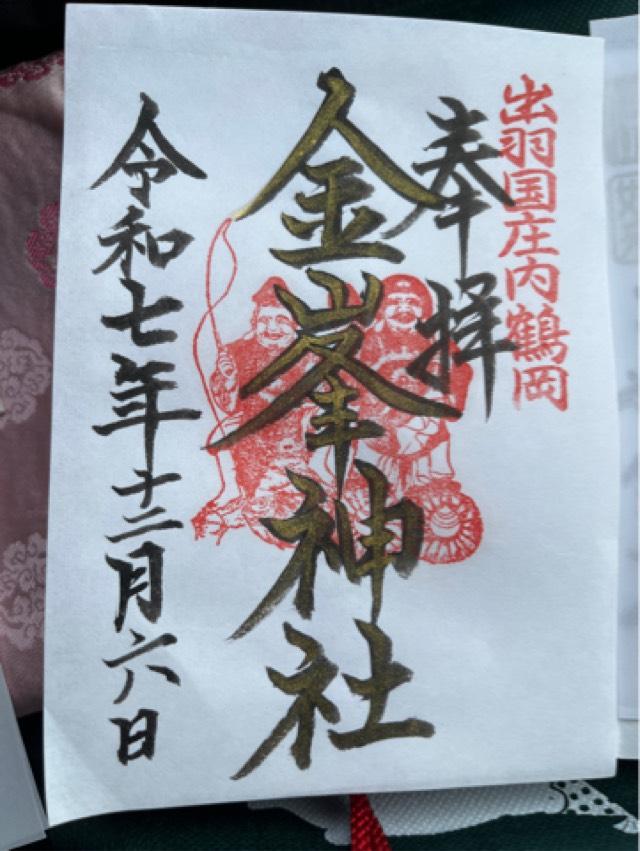 出羽国庄内鶴岡
奉拝
金峯神社
令和七年十二月六日